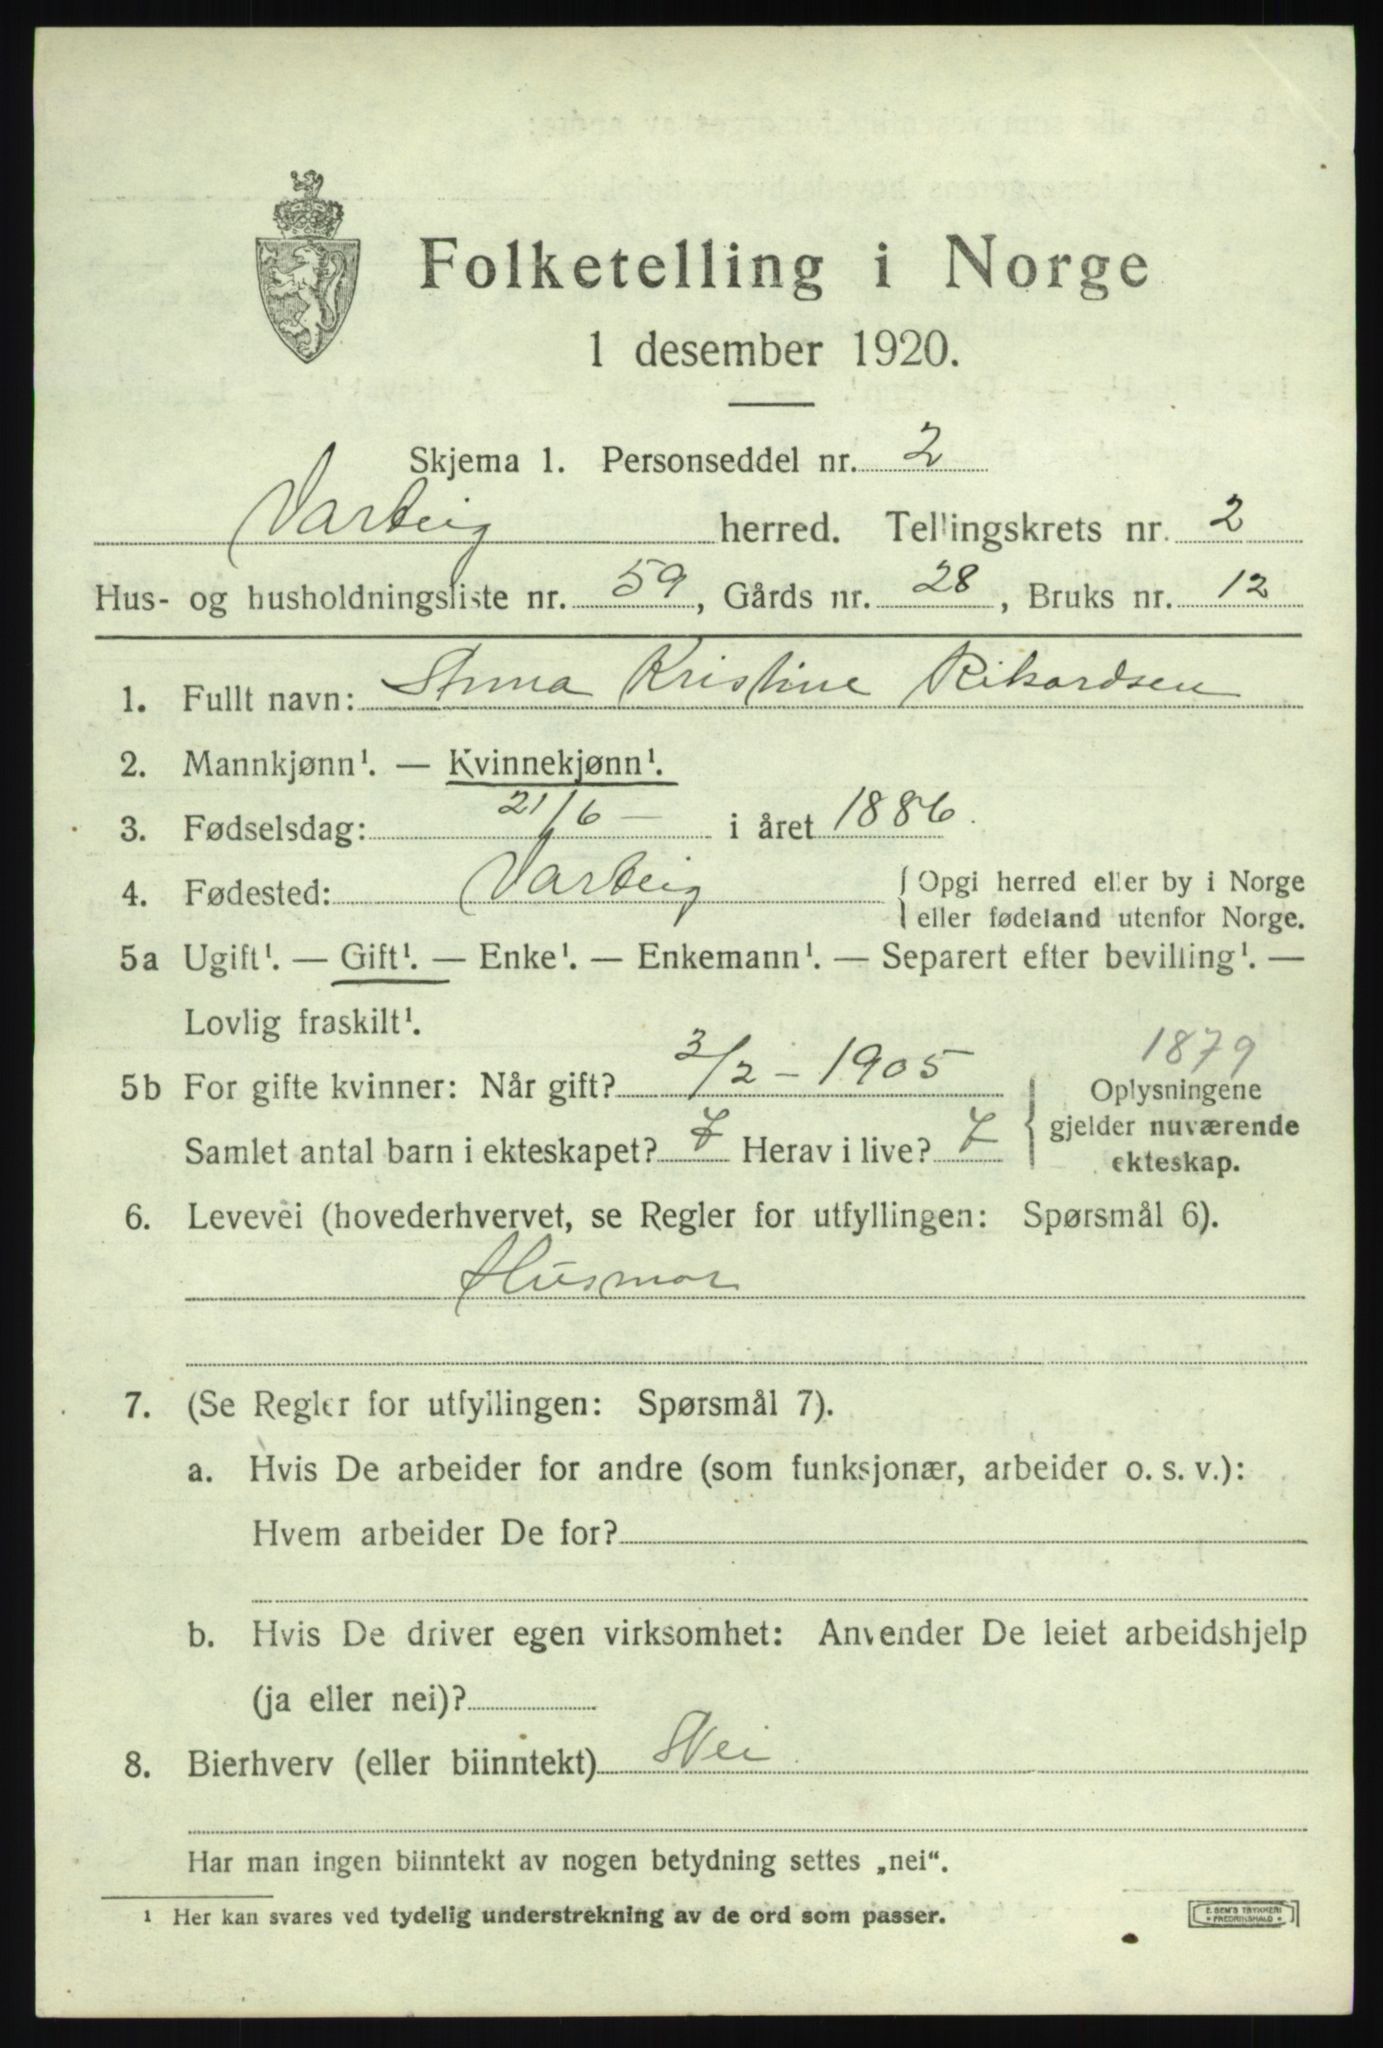 Folketelling i Norge
1 desember 1920.
Skjema 1. Personseddel nr. 2
Varteig herred. Tellingskrets nr. 2
Hus- og husholdningsliste nr. 59, Gårds nr. 28, Bruks nr. 12
1. Fullt navn: Anna Kristine Rikardsen
2. Mannkjønn¹. — Kvinnekjønn¹.
3. Fødselsdag: 21/6 — i året 1886.
4. Fødested: Varteig { Opgi herred eller by i Norge
eller fødeland utenfor Norge.
5a Ugift¹. — Gift¹. — Enke¹. — Enkemann¹. — Separert efter bevilling¹. —
Lovlig fraskilt¹.
1879
5b For gifte kvinner: Når gift? 3/2 – 1905 { Oplysningene
gjelder nuværende
Samlet antal barn i ekteskapet? 7 Herav i live? 7
ekteskap.
6. Levevei (hovederhvervet, se Regler for utfyllingen: Spørsmål 6).
Husmor
7. (Se Regler for utfyllingen: Spørsmål 7).
a. Hvis De arbeider for andre (som funksjonær, arbeider o. s. v.):
Hvem arbeider De for?
b. Hvis De driver egen virksomhet: Anvender De leiet arbeidshjelp
(ja eller nei)?
8. Bierhverv (eller biinntekt) Nei.
Har man ingen biinntekt av nogen betydning settes „nei“.
¹ Her kan svares ved tydelig understrekning av de ord som passer.
E. SEM'S TRYKKERI
• FREDRIKSHALD •